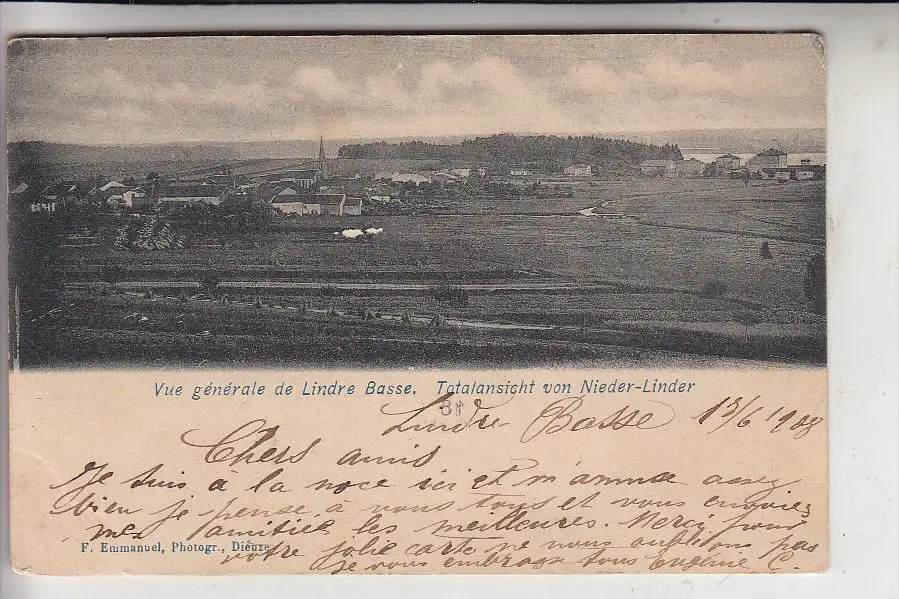 Vue générale de Lindre Basse. Totalansicht von Nieder-Linder
Lindre-Basse 13/6 1903
Chers amis
Je suis a la noce ici et m'amuse assez
bien je pense à vous tous et vous envoie
mes amitiés les meilleures. Merci pour
votre jolie carte ne nous oublions pas
Je vous embrasse tous Eugénie C.
F. Emmanuel, Photogr., Dieuze